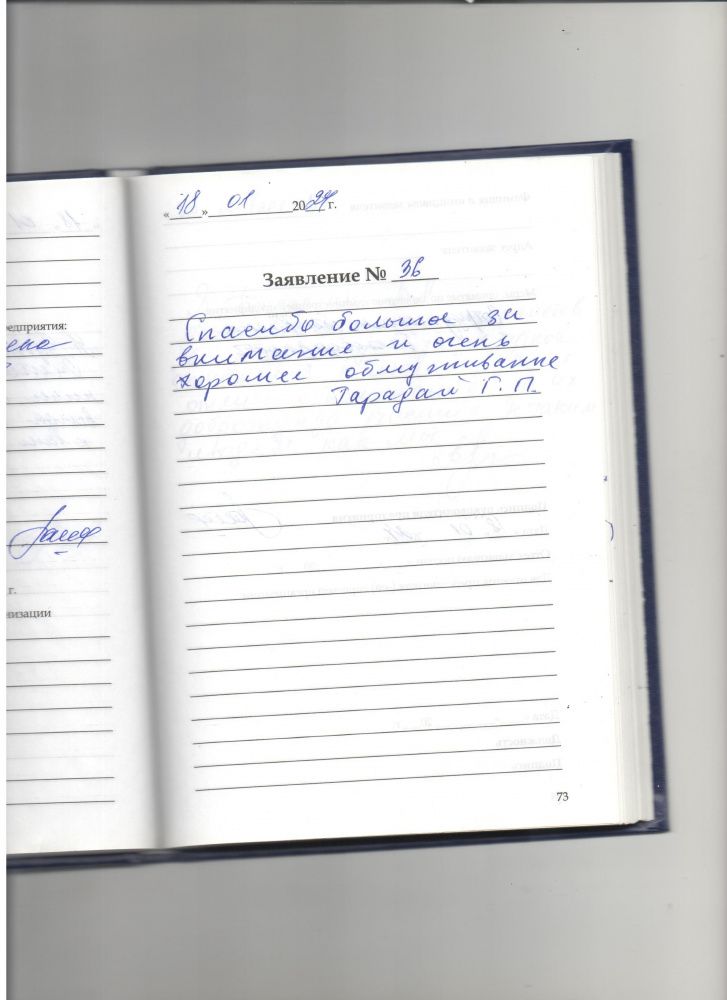 «18» 01 2024 г.
Заявление № 36
Спасибо большое за
внимание и очень
хорошее обслуживание
Гарадай Г. П.
едприятия:
г.
низации
73